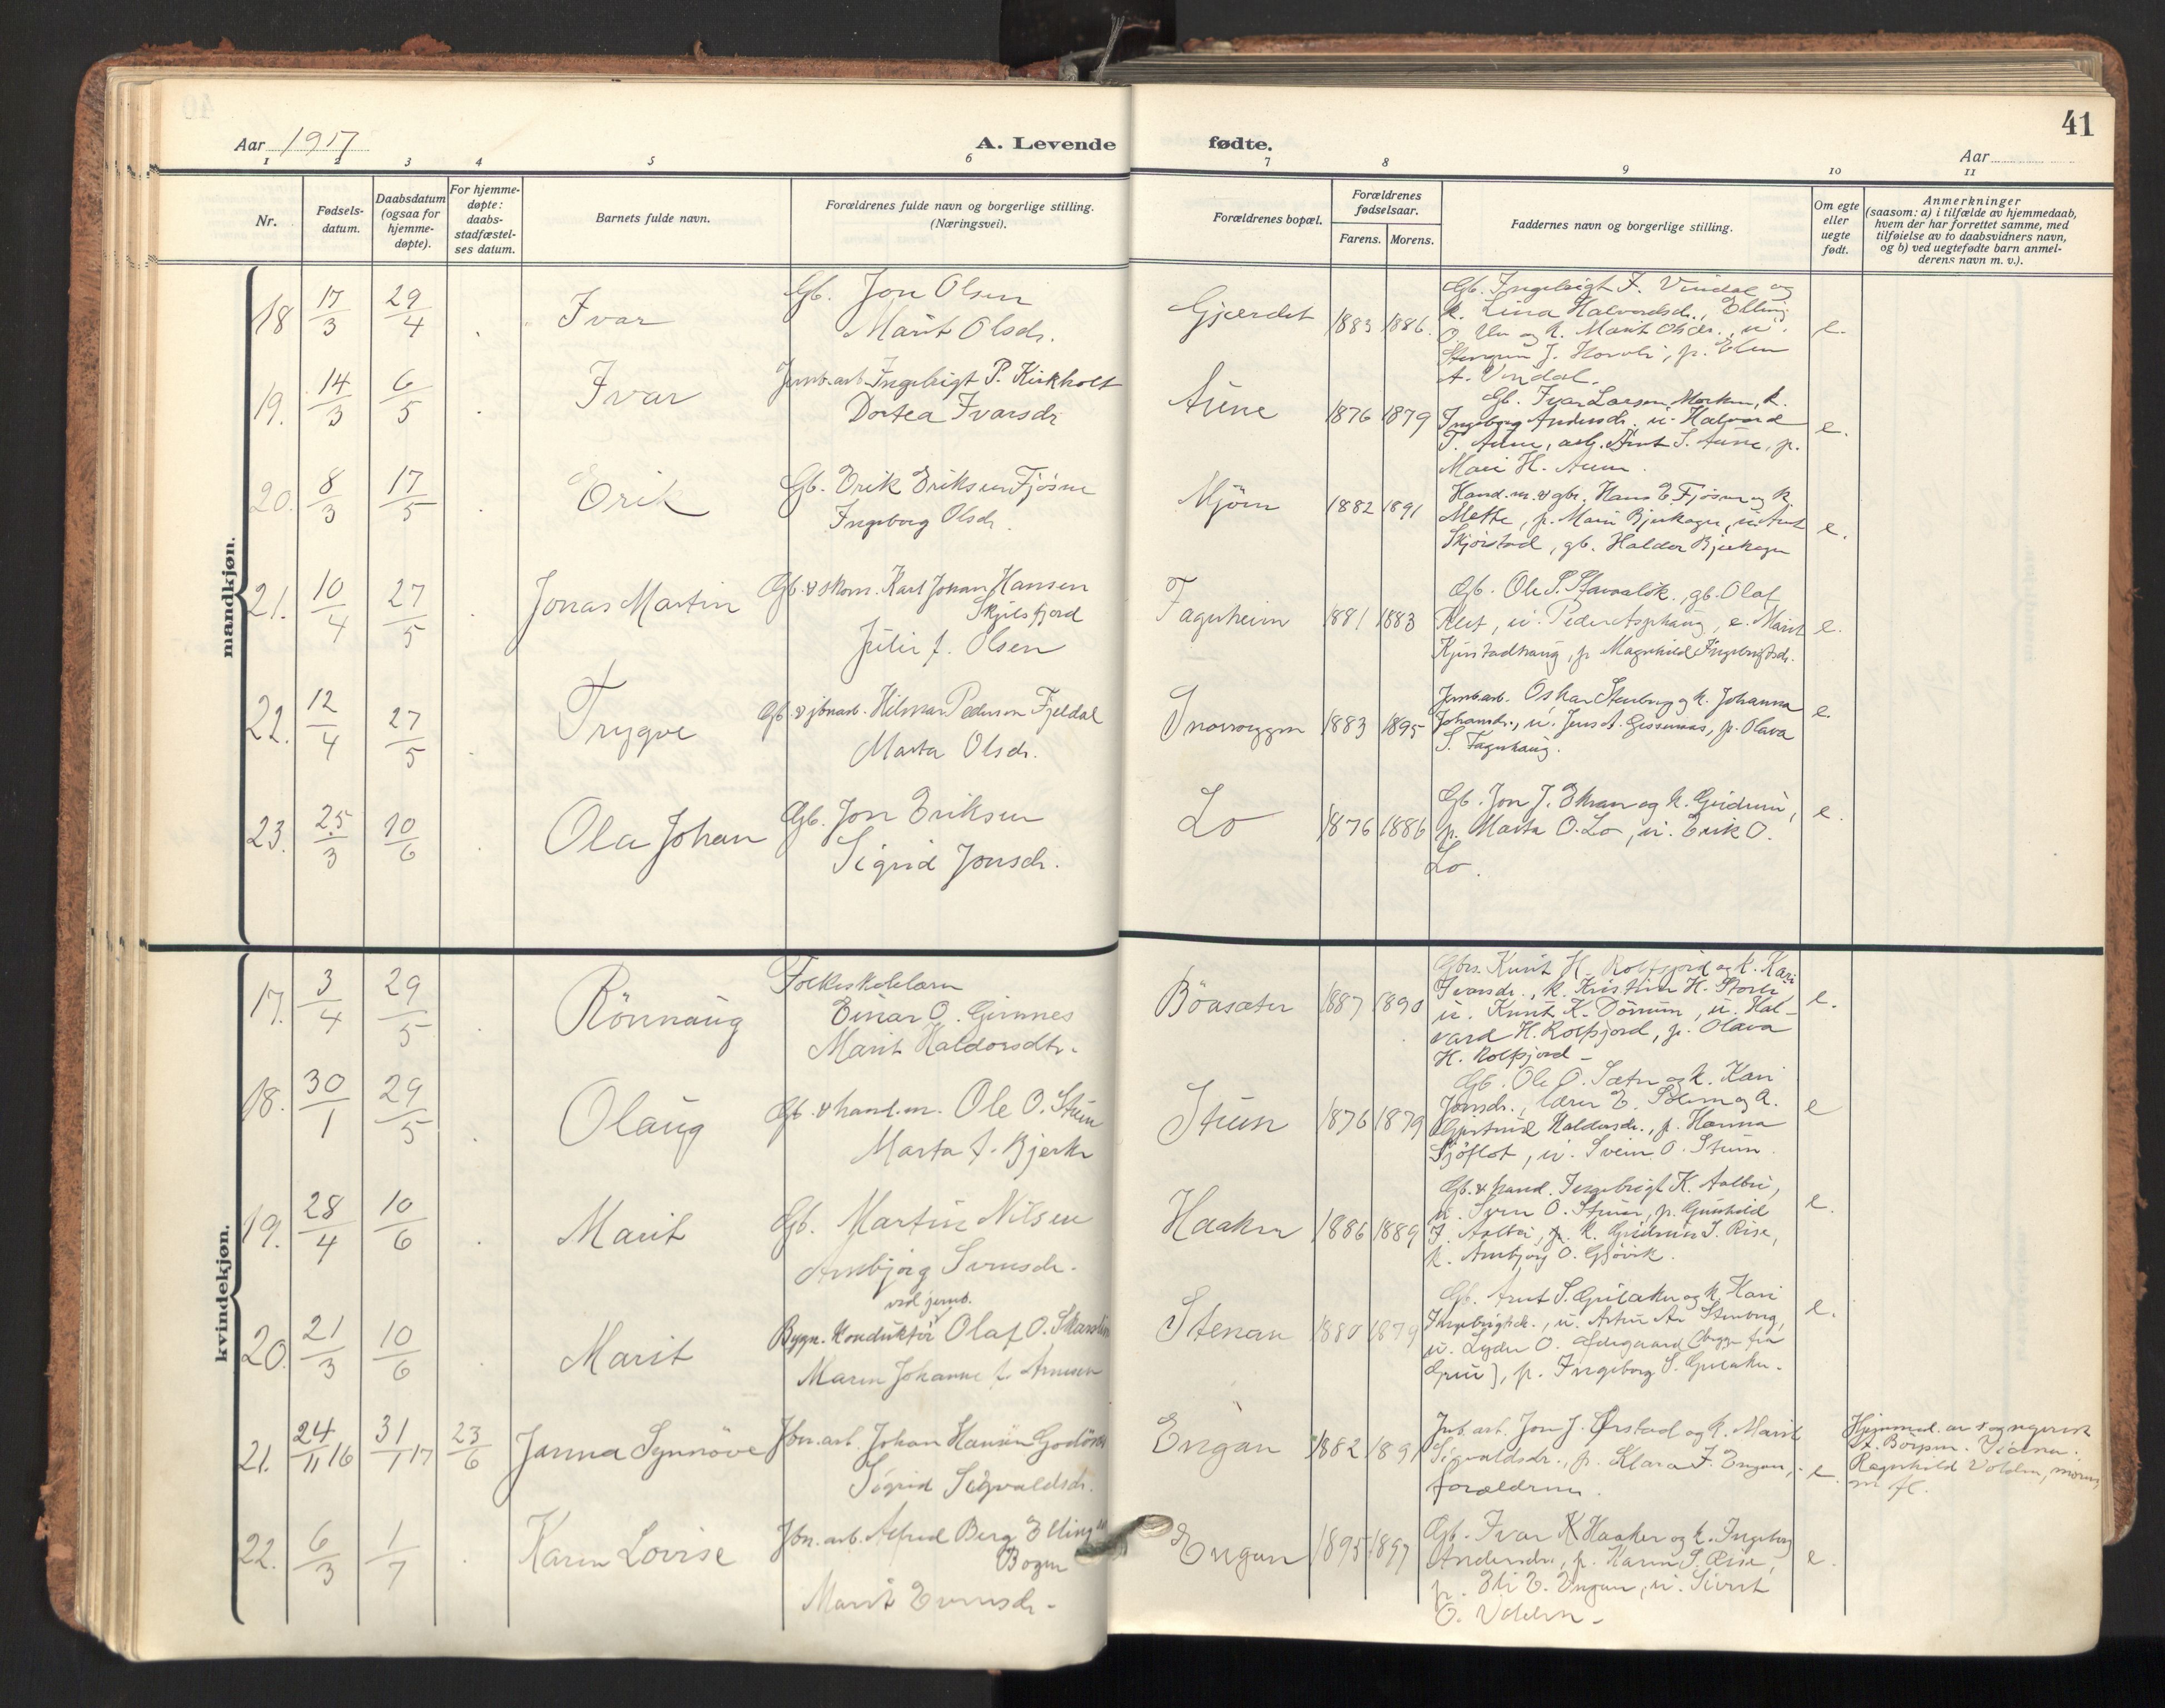 41
Aar 1917
A. Levende
fødte.
Aar
1 2 3 4 5 6 7 8 9 10 11
Nr.
Fødsels-
datum.
Daabsdatum
(ogsaa for
hjemme-
døpte).
For hjemme-
døpte:
daabs-
stadfæstel-
ses datum.
Barnets fulde navn.
Forældrenes fulde navn og borgerlige stilling.
(Næringsvei).
Forældrenes bopæl.
Forældrenes
fødselsaar.
Farens. Morens.
Faddernes navn og borgerlige stilling.
Om egte
eller
uegte
født.
Anmerkninger
(saasom: a) i tilfælde av hjemmedaab,
hvem der har forrettet samme, med
tilføielse av to daabsvidners navn,
og b) ved uegtefødte barn anmel-
derens navn m. v.).
mandkjøn.
18 17/3 29/4 Ivar
Gb. Jon Olsen
Marit Olsdr.
Gjærdet 1883 1886.
Gb. Ingebrigt F. Vindal og
k. Lina Halvordsdr., Elling
O. og k. Marit Olsdr., u.
J. , p. Elen
A. Vindal.
e.
19. 14/3 6/5 Ivar
Jernb.arb. Ingebrigt P. Kirkholt
Dortea Ivarsdr
Aune 1876 1879
Gb. Ivar Larsen Merken, k.
Ingeborg Andersdr., u. Halvord
T. Aune, Arnt S. Aune, p.
Mari H. Aune.
e.
20. 8/3 17/5 Erik
Gb. Erik Eriksen Fjösne
Ingeborg Olsdr.
Mjöen 1882 1891
Hand.m. & gbr. Hans E. Fjösne og k.
Mette, p. Mari Bjerkager, u. Arnt
Skjörstad, gb. Haldor Bjerkager
e.
21. 10/4 27/5 Jonas Martin
Gb. & skom. Karl Johan Hansen
Skjelsfjord
Julie f. Olsen
Fagerheim 1881 1883
Gb. Ole S. , gb. Olaf
, u. Peder Asphaug, e. Marit
, p. Magnhild Ingebrigtsdr.
e.
22. 12/4 27/5 Trygve
Gb. & jbnarb. Hilmar Pedersen Fjeldal
Marta Olsdr.
Snoroeggen 1883 1895
Jernb.arb. Oskar Stenberg og k. Johanna
Johansdr., u. Jens A. Gissenaas, p. Olava
S. Fagerhaug.
e.
23. 25/3 10/6 Ola Johan
Gb. Jon Eriksen
Sigrid Jonsdr.
Lo 1876 1886
Gb. Jon J. Ekran og k. Gudrun,
p. Marta O. Lo, u. Erik O.
Lo.
e.
kvindekjøn.
17. 3/4 29/5 Rönnaug
Folkeskolelærer
Einar O. Gimnes
Marit Haldorsdtr.
Böasæter 1887 1890
Gbr. Knut H. Rolfsjord og k. Kari
Ivarsdr., k. Kristine H. Storli
u. Knut K. Dörum, u. Hal-
vard H. Rolfsjord, p. Olava
H. Rolfsjord -
e.
18. 30/1 29/5 Olaug
Gb. & hand.m. Ole O. Stuen
Marta f. Bjerke
Stuen 1876 1879
Gb. Ole O. Sæter og k. Kari
Jonsdr., lærer E. Solem og k.
Gjertrud Haldorsdr., p. Hanna
Sjöflot, u. Svein O. Stuen.
e
19. 28/4 10/6 Marit
Gb. Martin Nilsen
Arnbjörg Svensdr.
Haaker 1886 1889
Gb. & hand. Ingebrigt K. Aalbu,
u. Sven O. Stuen, p. Gunhild
J. Aalbu, k. Gudrun S. Rise,
k. Arnbjörg O. Gjövik.
e.
20. 21/3 10/6 Marit
ved jernb.
Bygn. Konduktör Olaf O.
Maren Johanne f. Arnesen
Stenan 1880 1879
Gb. Arnt S. Gulaker og k. Kari
Ingebrigtsdr., u. Stenberg,
u. O. Ödegaard (begge fra
), p. Ingeborg S. Gulaker.
e.
21. 24/11 16 31/1 17 23/6 Janna Synnöve
Jbn.arb. Johan Hansen
Sigrid Sigvaldsdr.
Engan 1882 1891
Jnb.arb. Jon J. Örstad og k. Marit
Sigvaldsdr., p. Klara F. Engan,
forældrene.
e.
Hjemmed. av
. Vidner:
Ragnhild Volden,
m fl.
22. 6/3 1/7 Karen Lovise
Jbn.arb. Alfred Berg Elling
Bogen
Marit Evensdr.
Engan 1895 1897
Gb. Ivar K Haaker og k. Ingeborg
Andersdr., p. Karen S. Rise,
p. Eli E. Engan, u. Sivert
O. Volden -
e.